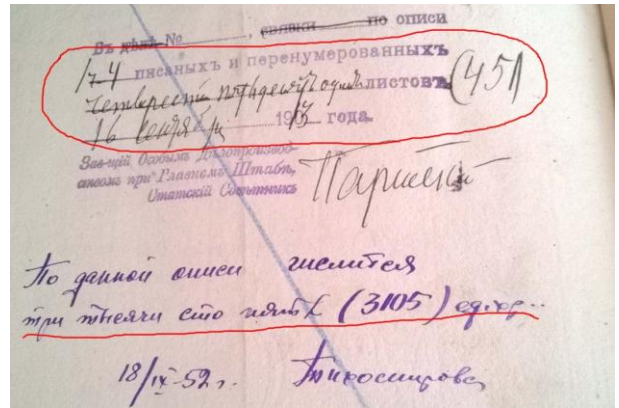 Въ дѣлѣ № , связки по описи
1-4 писаныхъ и перенумерованныхъ
четыреста пятьдесятъ одинъ листовъ (451)
16 1913 года.
Зав-щій Особымъ Дѣлопроизвод-
ствомъ при Главномъ Штабѣ,
Статскій Совѣтникъ
По данной описи числится
три тысячи сто пять (3105) ед.хр.
18/IX-52 г.